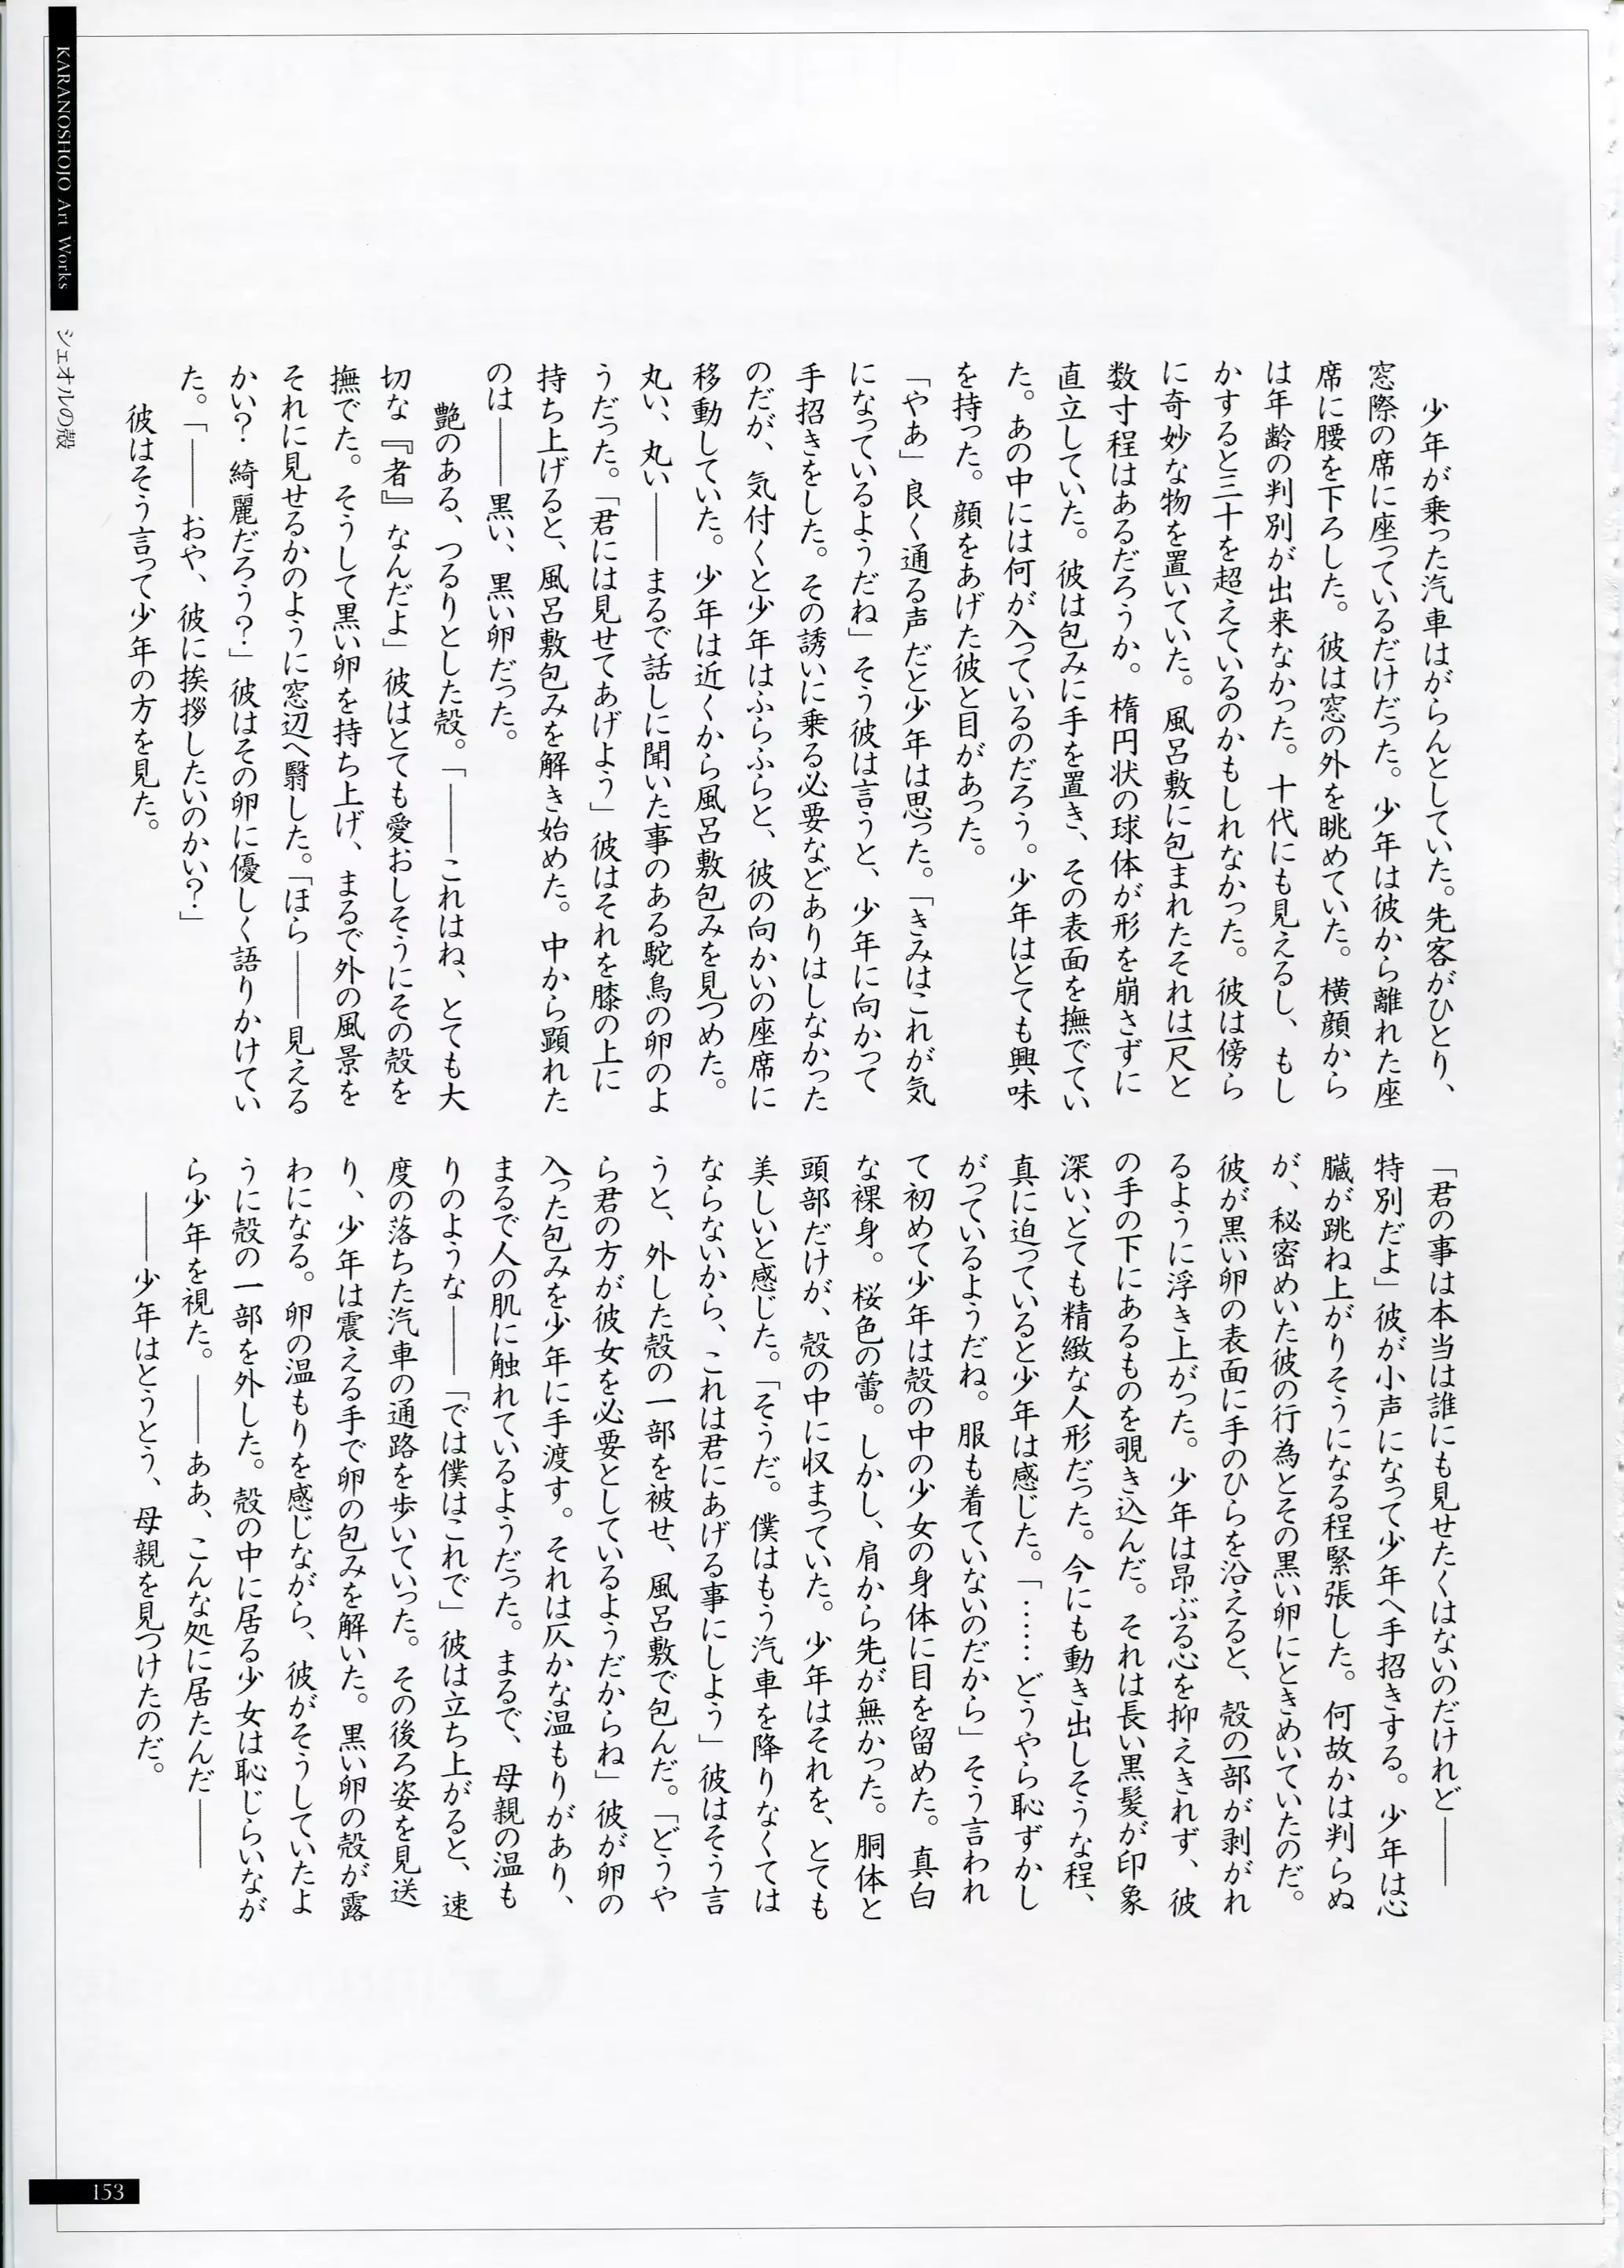 KARANOSHOJO Art Works
シェオルの殻
　少年が乗った汽車はがらんとしていた。先客がひとり、
窓際の席に座っているだけだった。少年は彼から離れた座
席に腰を下ろした。彼は窓の外を眺めていた。横顔から
は年齢の判別が出来なかった。十代にも見えるし、もし
かすると三十を超えているのかもしれなかった。彼は傍ら
に奇妙な物を置いていた。風呂敷に包まれたそれは一尺と
数寸程はあるだろうか。楕円状の球体が形を崩さずに
直立していた。彼は包みに手を置き、その表面を撫でてい
た。あの中には何が入っているのだろう。少年はとても興味
を持った。顔をあげた彼と目があった。
「やあ」良く通る声だと少年は思った。「きみはこれが気
になっているようだね」そう彼は言うと、少年に向かって
手招きをした。その誘いに乗る必要などありはしなかった
のだが、気付くと少年はふらふらと、彼の向かいの座席に
移動していた。少年は近くから風呂敷包みを見つめた。
丸い、丸い――まるで話しに聞いた事のある駝鳥の卵のよ
うだった。「君には見せてあげよう」彼はそれを膝の上に
持ち上げると、風呂敷包みを解き始めた。中から顕れた
のは――黒い、黒い卵だった。
　艶のある、つるりとした殻。「――これはね、とても大
切な『者』なんだよ」彼はとても愛おしそうにその殻を
撫でた。そうして黒い卵を持ち上げ、まるで外の風景を
それに見せるかのように窓辺へ翳した。「ほら――見える
かい？　綺麗だろう？」彼はその卵に優しく語りかけてい
た。「――おや、彼に挨拶したいのかい？」
　彼はそう言って少年の方を見た。
「君の事は本当は誰にも見せたくはないのだけれど――
特別だよ」彼が小声になって少年へ手招きする。少年は心
臓が跳ね上がりそうになる程緊張した。何故かは判らぬ
が、秘密めいた彼の行為とその黒い卵にときめいていたのだ。
彼が黒い卵の表面に手のひらを沿えると、殻の一部が剥がれ
るように浮き上がった。少年は昂ぶる心を抑えきれず、彼
の手の下にあるものを覗き込んだ。それは長い黒髪が印象
深い、とても精緻な人形だった。今にも動き出しそうな程、
真に迫っていると少年は感じた。「……どうやら恥ずかし
がっているようだね。服も着ていないのだから」そう言われ
て初めて少年は殻の中の少女の身体に目を留めた。真白
な裸身。桜色の蕾。しかし、肩から先が無かった。胴体と
頭部だけが、殻の中に収まっていた。少年はそれを、とても
美しいと感じた。「そうだ。僕はもう汽車を降りなくては
ならないから、これは君にあげる事にしよう」彼はそう言
うと、外した殻の一部を被せ、風呂敷で包んだ。「どうや
ら君の方が彼女を必要としているようだからね」彼が卵の
入った包みを少年に手渡す。それは仄かな温もりがあり、
まるで人の肌に触れているようだった。まるで、母親の温も
りのような――「では僕はこれで」彼は立ち上がると、速
度の落ちた汽車の通路を歩いていった。その後ろ姿を見送
り、少年は震える手で卵の包みを解いた。黒い卵の殻が露
わになる。卵の温もりを感じながら、彼がそうしていたよ
うに殻の一部を外した。殻の中に居る少女は恥じらいなが
ら少年を視た。――ああ、こんな処に居たんだ――
　――少年はとうとう、母親を見つけたのだ。
153